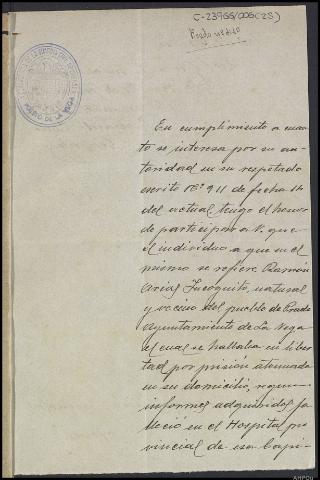 C-23766/006(25)
En cumplimiento a cuan
to se interesa por su au
toridad en su respetado
escrito Nº 911 de fecha 14
del actual tengo el honor
de participar a V. que
el individuo a que en el
mismo se refiere Ramón
Arias Incognito, natural
y vecino del pueblo de Prado
Ayuntamiento de La Vega
el cual se hallaba en liber
tad por prisión atenuada
en su domicilio, segun
informes adquiridos fa
lleció en el Hospital pro
vincial de esa Capi-